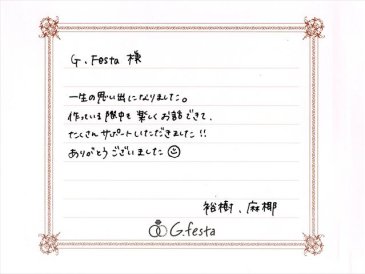 G.Festa 様
一生の思い出になりました。
作っている間中も楽しくお話できて、
たくさんサポートしていただきました!!
ありがとうございました☺
裕樹、麻椰
G.festa